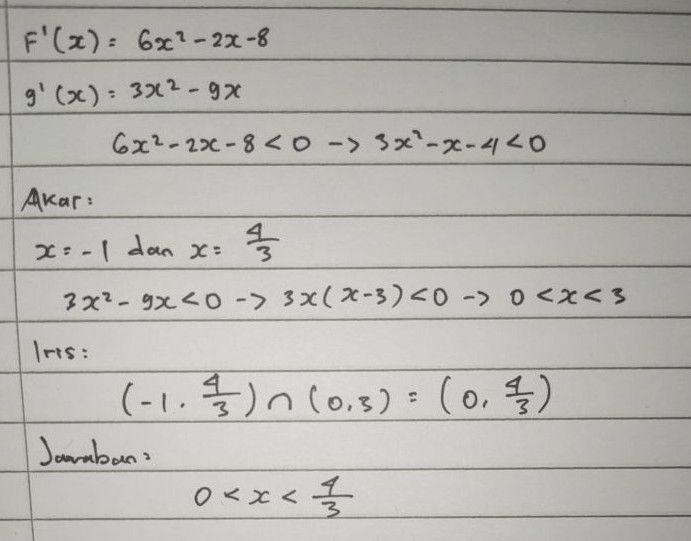 F'(x) = 6x² - 2x - 8
g'(x) = 3x² - 9x
6x² - 2x - 8 < 0 -> 3x² - x - 4 < 0
Akar:
x = -1 dan x = 4/3
3x² - 9x < 0 -> 3x(x-3) < 0 -> 0 < x < 3
Iris:
(-1, 4/3) ∩ (0,3) = (0, 4/3)
Jawaban:
0 < x < 4/3